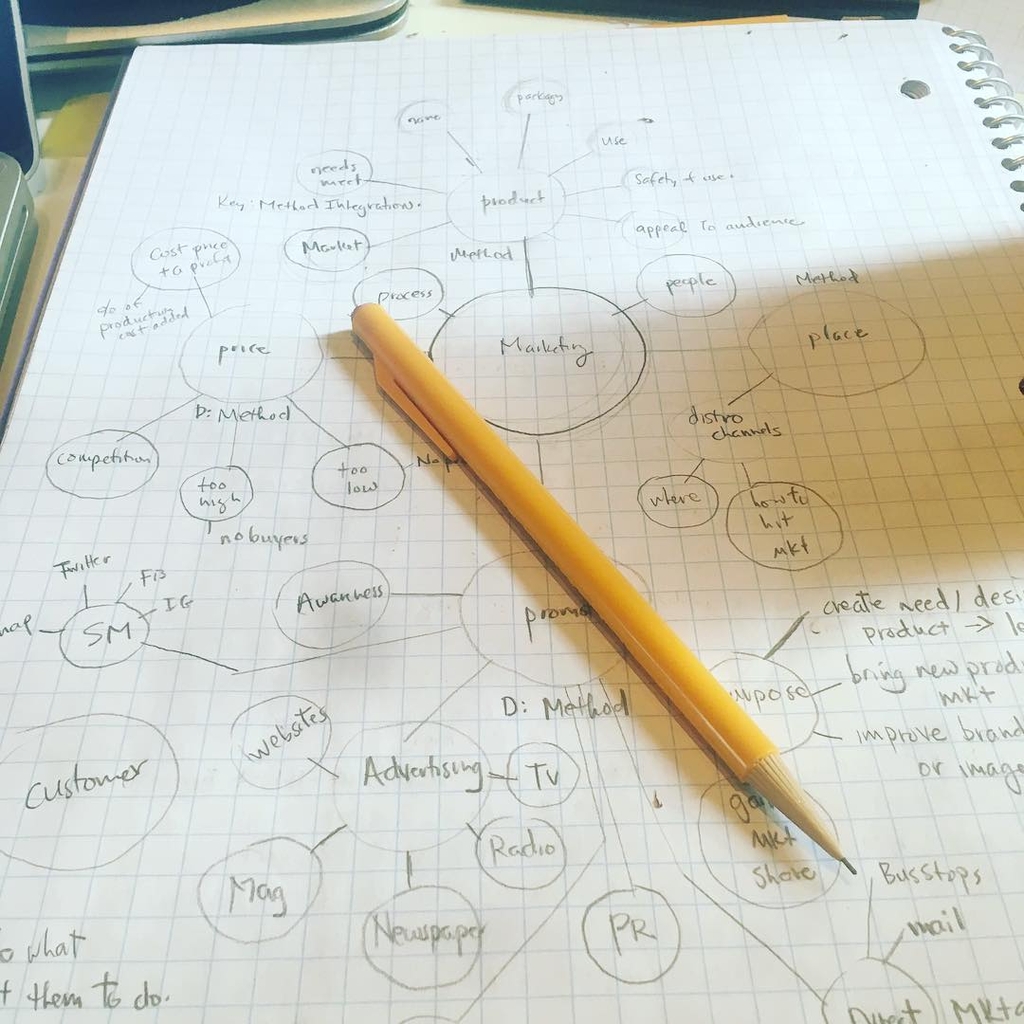 name
package
use
needs
meet
Safety & use.
Key: Method Integration.
product
appeal to audience
Market
Method
Cost price
to profit
process
people
Method
% of
production
cost added
price
Marketing
place
D: Method
distro
channels
competition
too
high
too
low
where
how to
hit
mkt
no buyers
Twitter
FB
IG
SM
Awarness
create need/
product →
bring new
mkt
improve brand
or image
D: Method
websites
customer
Advertising
TV
mkt
share
Radio
Mag
Newspaper
PR
Bus Stops
mail
what
them to do.
Direct